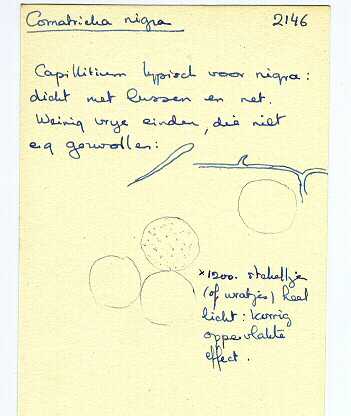 Comatricha nigra 2146
Capillitium typisch voor nigra:
dicht met lussen en net.
Weinig vrye einden, die niet
e.g. gezwollen:
×1200. stekeltjes
(of wratjes) heel
licht: korrig
oppervlakte
effect.